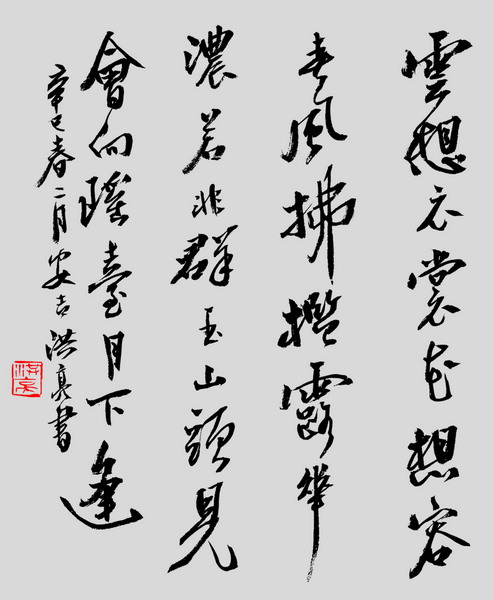 雲想衣裳花想容
春風拂檻露華
濃若非群玉山頭見
會向瑤臺月下逢
辛巳春二月安吉洪亮書
洪亮